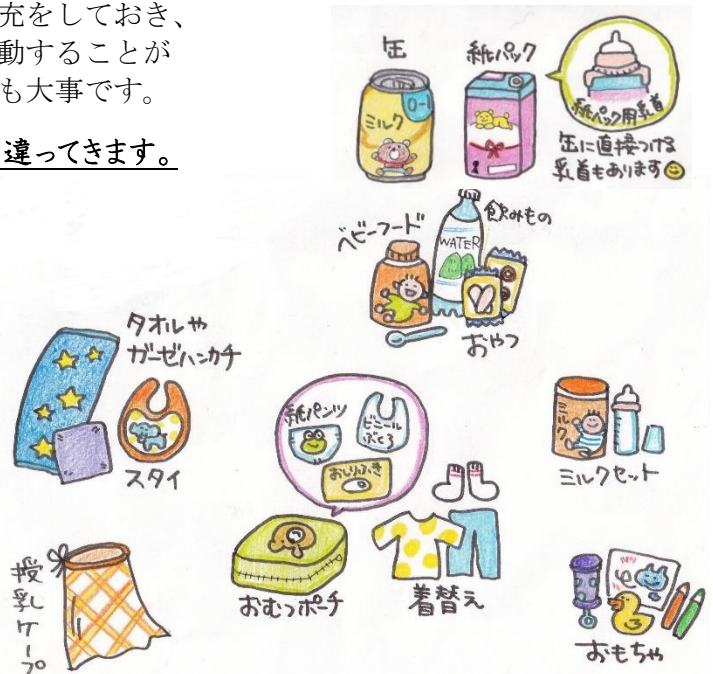 充をしておき、
動することが
も大事です。
違ってきます。
缶
ミルク
0-1
紙パック
紙パック用乳首
缶に直接つける
乳首もあります
ベビーフード
飲みもの
WATER
おやつ
タオルや
ガーゼハンカチ
スタイ
紙パンツ
ビニール
ぶくろ
おしりふき
おむつポーチ
着替え
ミルク
ミルクセット
授乳ケープ
おもちゃ